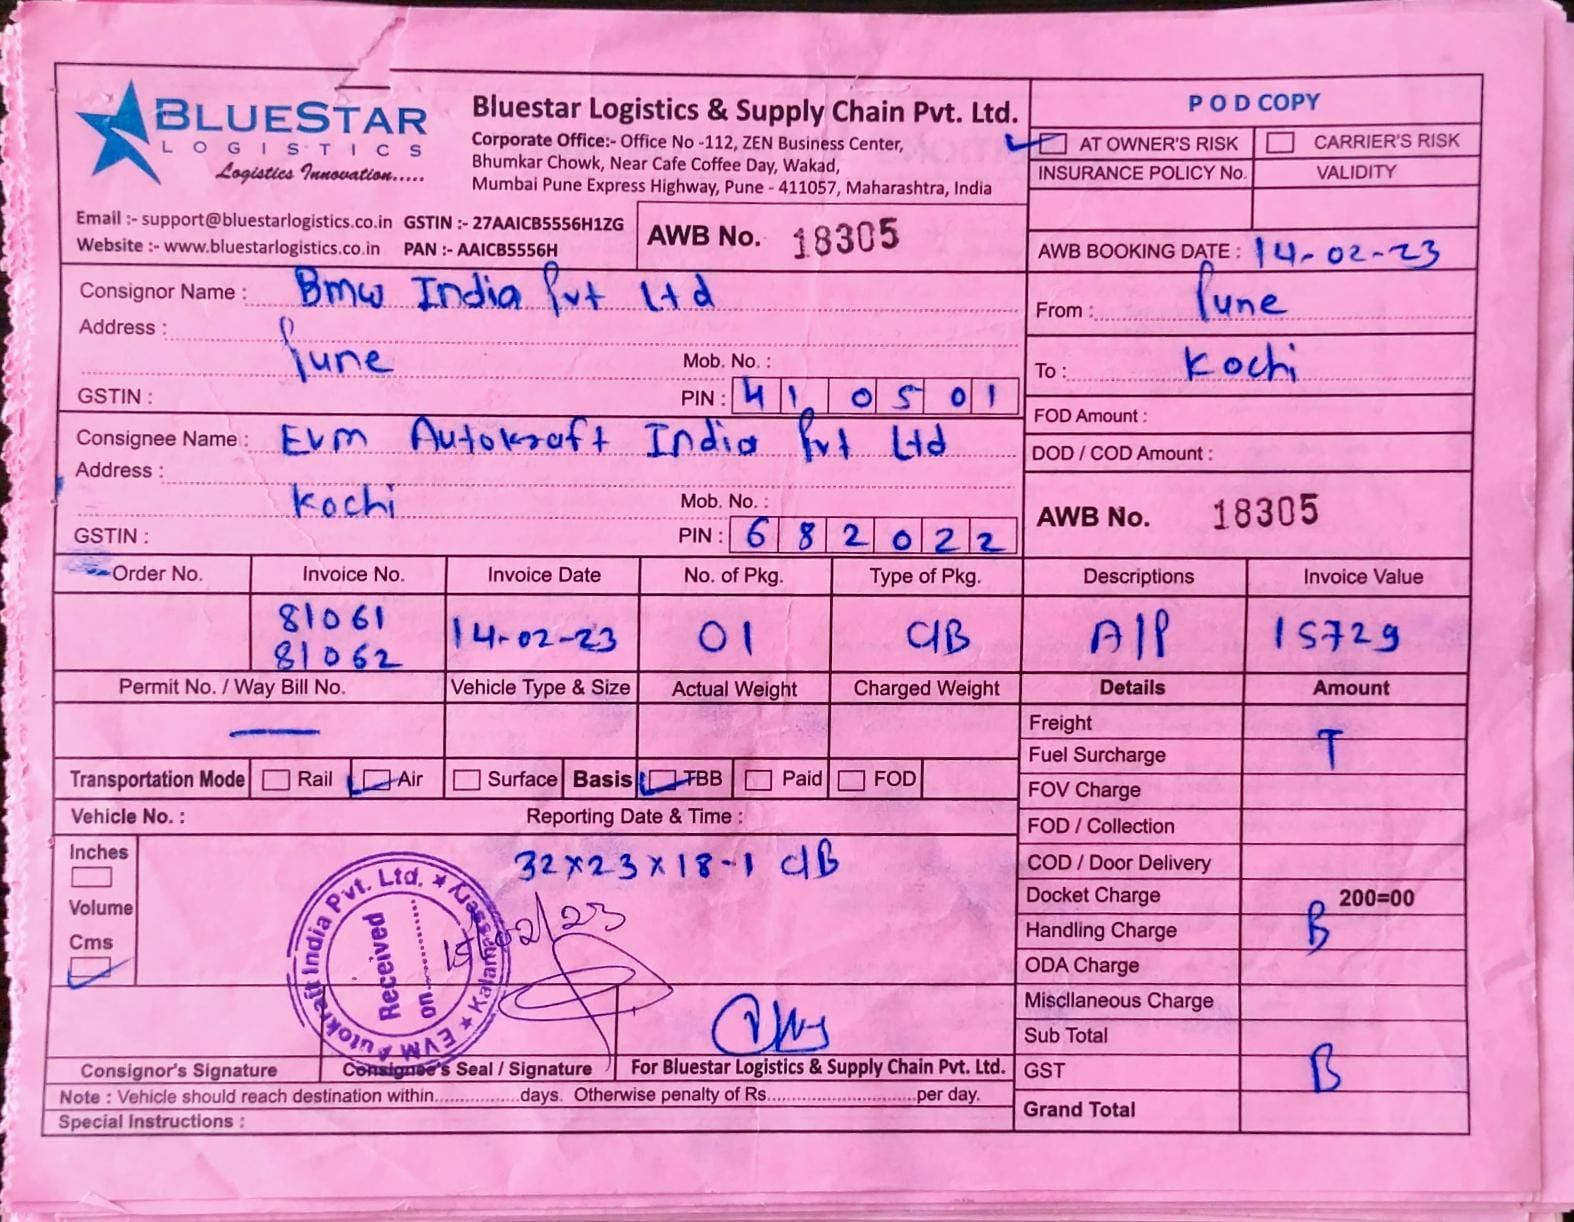 BLUESTAR
LOGISTICS
Logistics Innovation.....
Bluestar Logistics & Supply Chain Pvt. Ltd.
Corporate Office:- Office No -112, ZEN Business Center,
Bhumkar Chowk, Near Cafe Coffee Day, Wakad,
Mumbai Pune Express Highway, Pune - 411057, Maharashtra, India
POD COPY
AT OWNER'S RISK CARRIER'S RISK
INSURANCE POLICY No. VALIDITY
Email :- support@bluestarlogistics.co.in GSTIN :- 27AAICB5556H1ZG
Website :- www.bluestarlogistics.co.in PAN :- AAICB5556H
AWB No. 18305
AWB BOOKING DATE : 14-02-23
Consignor Name : Bmw India Pvt Ltd
Address :
Pune Mob. No. :
GSTIN : PIN : 410501
From : Pune
To : Kochi
FOD Amount :
Consignee Name : Evm Autokraft India Pvt Ltd
Address :
Kochi Mob. No. :
GSTIN : PIN : 682022
DOD / COD Amount :
AWB No. 18305
Order No. Invoice No. Invoice Date No. of Pkg. Type of Pkg. Descriptions Invoice Value
81061
81062 14-02-23 01 C/B A/P 15729
Permit No. / Way Bill No. Vehicle Type & Size Actual Weight Charged Weight Details Amount
—
Transportation Mode Rail Air Surface Basis TBB Paid FOD
Vehicle No. : Reporting Date & Time :
Inches
Volume
Cms
32x23x18-1 C/B
EVM Autokraft India Pvt. Ltd. ★ Kalamassery ★
Received
on.........
15/02/23
Freight
Fuel Surcharge T
FOV Charge
FOD / Collection
COD / Door Delivery
Docket Charge 200=00
Handling Charge B
ODA Charge
Miscllaneous Charge
Sub Total
GST B
Grand Total
Consignor's Signature Consignee's Seal / Signature For Bluestar Logistics & Supply Chain Pvt. Ltd.
Note : Vehicle should reach destination within................days. Otherwise penalty of Rs............................per day.
Special Instructions :